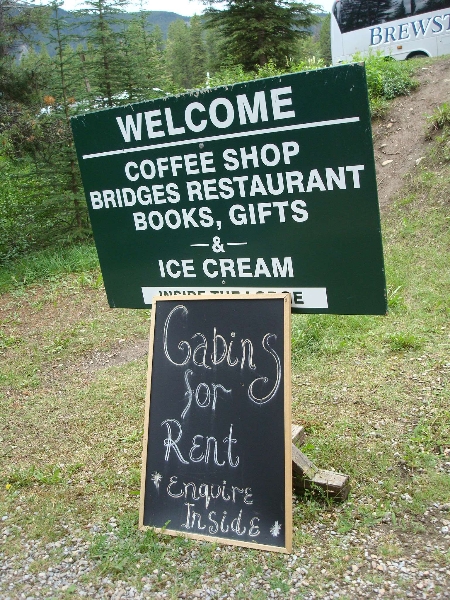 BREWST
WELCOME
COFFEE SHOP
BRIDGES RESTAURANT
BOOKS, GIFTS
- & -
ICE CREAM
INSIDE THE LODGE
Cabins
for
Rent
* Enquire
Inside *